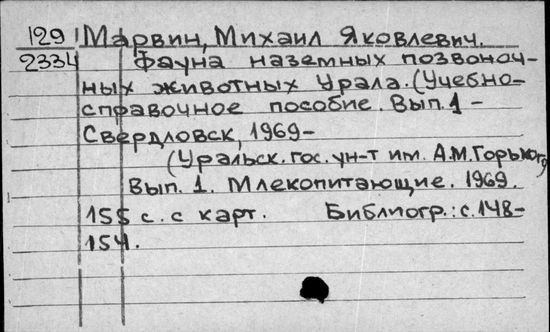 129 Марвин, Михаил Яковлевич.
2334 Фауна наземных позвоноч-
ных животных Урала. (Учебно-
справочное пособие. Вып. 1 -
Свердловск, 1969-
(Уральск. гос. ун-т им. А.М.Горького)
Вып. 1. Млекопитающие. 1969.
155 с. с карт. Библиогр.: с. 148-
154.